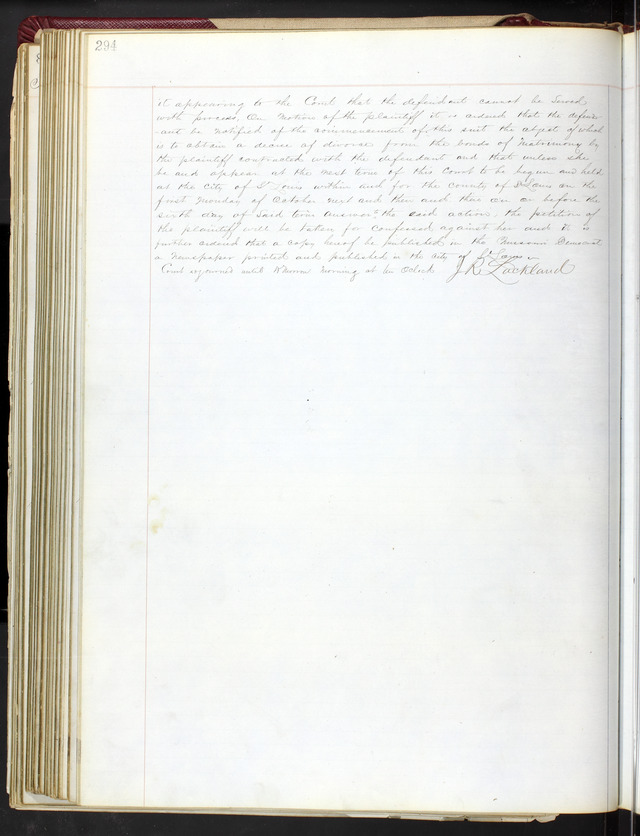 294
it appearing to the Court that the defendant cannot be Served
with process, On motion of the plaintiff it is ordered that the defend-
-ant be notified of the commencement of this suit the object of which
is to obtain a decree of divorce from the bonds of Matrimony by
the plaintiff contracted with the defendant and that unless she
be and appear at the next term of this Court to be begun and held
at the City of St Louis within and for the county of St Louis on the
first Monday of October next and then and there on or before the
sixth day of Said term answer the said action, the petition of
the plaintiff will be taken for confessed against her and it is
further ordered that a copy hereof be published in the Missouri Democrat
a Newspaper printed and published in the City of St Louis
Court adjourned until morning at ten Oclock J R Lackland